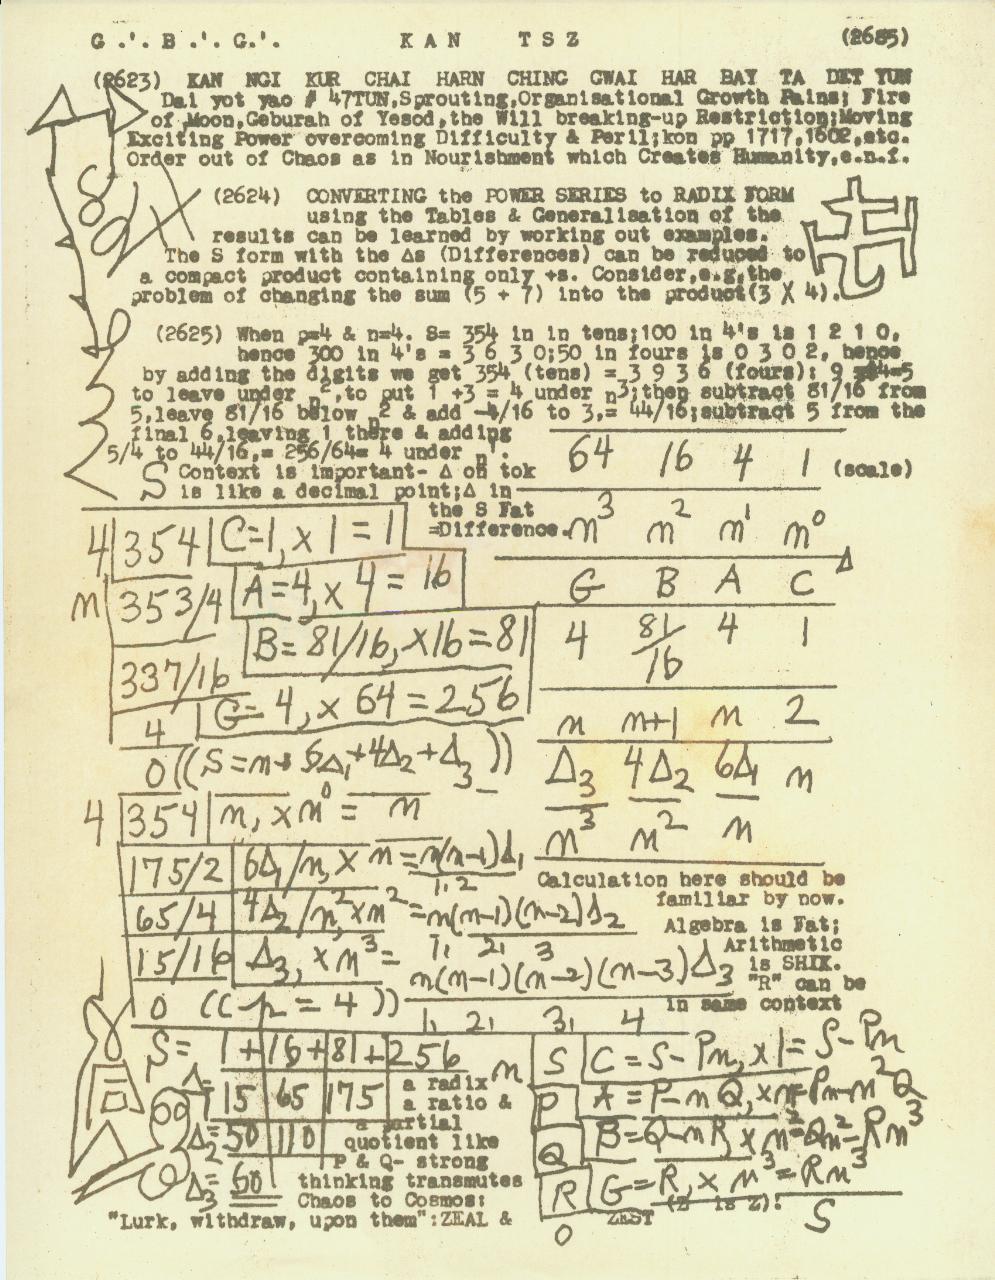 G .'. B .'. G.'. KAN TSZ (2685)
(2623) KAN NGI KUR CHAI HARN CHING GWAI HAR BAY TA DET YUN
Dai yot yao # 47TUN,Sprouting,Organisational Growth Pains; Fire
of Moon,Geburah of Yesod,the Will breaking-up Restriction;Moving
Exciting Power overcoming Difficulty & Peril;kon pp 1717,1602,etc.
Order out of Chaos as in Nourishment which Creates Humanity,e.n.f.
(2624) CONVERTING the POWER SERIES to RADIX FORM
using the Tables & Generalisation of the
results can be learned by working out examples.
The S form with the Δs (Differences) can be reduced to
a compact product containing only +s. Consider,e.g,the
problem of changing the sum (5 + 7) into the product(3 X 4).
(2625) When p=4 & n=4. S= 354 in in tens;100 in 4's is 1 2 1 0,
hence 300 in 4's = 3 6 3 0;50 in fours is 0 3 0 2, hence
by adding the digits we get 354 (tens) = 3 9 3 6 (fours): 9 -4=5
to leave under n²,to put 1 +3 = 4 under n³;then subtract 81/16 from
5,leave 81/16 below n² & add -4/16 to 3,= 44/16;subtract 5 from the
final 6,leaving 1 there & adding
5/4 to 44/16,= 256/64= 4 under n'.
S Context is important- Δ on tok
is like a decimal point;Δ in
the S Fat
=Difference.
64 16 4 1 (scale)
n³ n² n' n⁰
G B A C Δ
4 81/16 4 1
n n+1 n 2
Δ₃ 4Δ₂ 6Δ₁ n
n³ n² n
4 354 C=1, x 1 = 1
n 353/4 A=4, x 4 = 16
337/16 B=81/16, x16=81
4 G= 4, x 64 = 256
0 ((S=n+6Δ₁+4Δ₂+Δ₃))
4 354 n, x n⁰ = n
175/2 6Δ₁/n, x n = n(n-1)Δ₁
1, 2
65/4 4Δ₂/n², x n² = n(n-1)(n-2)Δ₂
1, 2, 3
15/16 Δ₃, x n³ = n(n-1)(n-2)(n-3)Δ₃
1, 2, 3, 4
0 ((-p = 4))
Calculation here should be
familiar by now.
Algebra is Fat;
Arithmetic
is SHIK.
"R" can be
in same context
S= 1+16+81+256
Δ₁= 15 65 175
Δ₂= 50 110
Δ₃= 60
a radix n
a ratio &
a partial
quotient like
P & Q- strong
thinking transmutes
Chaos to Cosmos:
"Lurk, withdraw, upon them":ZEAL & ZEST (Z is Z).
S C = S-Pn, x1 = S-Pn
P A = P-nQ, xn=Pn-n²Q
Q B=Q-nR, x n²=Qn²-Rn³
R G=R, x n³ = Rn³
0 S